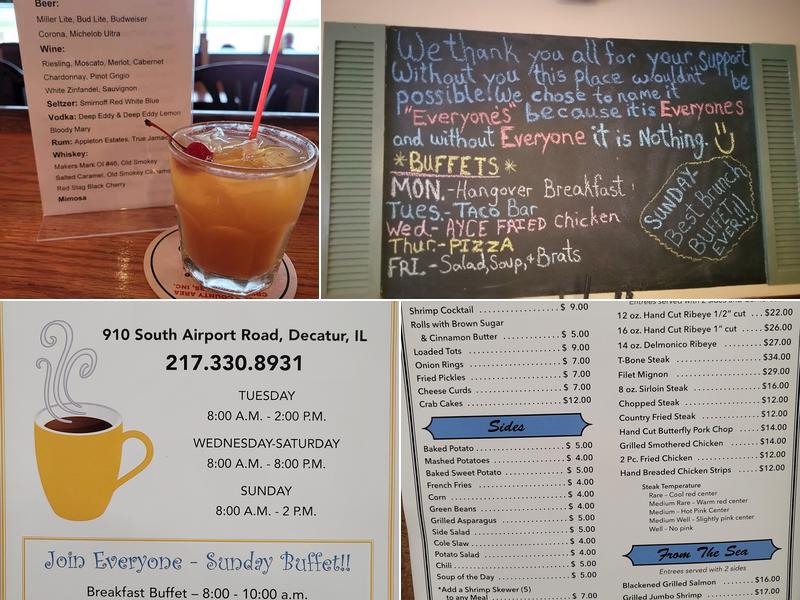 Beer:
Miller Lite, Bud Lite, Budweiser
Corona, Michelob Ultra
Wine:
Riesling, Moscato, Merlot, Cabernet
Chardonnay, Pinot Grigio
White Zinfandel, Sauvignon
Seltzer: Smirnoff Red White Blue
Vodka: Deep Eddy & Deep Eddy Lemon
Bloody Mary
Rum: Appleton Estates, True
Whiskey:
Makers Mark OI #46, Old Smokey
Salted Caramel, Old Smokey
Red Stag Black Cherry
Mimosa
COUNTY AREA
We thank you all for your support
Without you this place wouldn't be
possible! We chose to name it
"Everyone's" because it is Everyone's
and without Everyone it is Nothing.
*BUFFETS*
MON.-Hangover Breakfast
Tues.-Taco Bar
Wed.- AYCE FRIED Chicken
Thur.-PIZZA
FRI.-Salad, Soup, + Brats
SUNDAY-
Best Brunch
BUFFET
EVER!!!
910 South Airport Road, Decatur, IL
217.330.8931
TUESDAY
8:00 A.M. - 2:00 P.M.
WEDNESDAY-SATURDAY
8:00 A.M. - 8:00 P.M.
SUNDAY
8:00 A.M. - 2 P.M.
Join Everyone - Sunday Buffet!!
Breakfast Buffet – 8:00 - 10:00 a.m.
Shrimp Cocktail $ 9.00
Rolls with Brown Sugar
& Cinnamon Butter $ 5.00
Loaded Tots $ 9.00
Onion Rings $ 7.00
Fried Pickles $ 7.00
Cheese Curds $ 7.00
Crab Cakes $12.00
Sides
Baked Potato $ 5.00
Mashed Potatoes $ 4.00
Baked Sweet Potato $ 5.00
French Fries $ 4.00
Corn $ 4.00
Green Beans $ 4.00
Grilled Asparagus $ 5.00
Side Salad $ 5.00
Cole Slaw $ 4.00
Potato Salad $ 4.00
Chili $ 5.00
Soup of the Day $ 5.00
*Add a Shrimp Skewer (5)
to any Meal $ 7.00
Entrees served with 2 sides
12 oz. Hand Cut Ribeye 1/2" cut $22.00
16 oz. Hand Cut Ribeye 1" cut $26.00
14 oz. Delmonico Ribeye $27.00
T-Bone Steak $34.00
Filet Mignon $29.00
8 oz. Sirloin Steak $16.00
Chopped Steak $12.00
Country Fried Steak $12.00
Hand Cut Butterfly Pork Chop $14.00
Grilled Smothered Chicken $14.00
2 Pc. Fried Chicken $12.00
Hand Breaded Chicken Strips $12.00
Steak Temperature
Rare – Cool red center
Medium Rare – Warm red center
Medium – Hot Pink Center
Medium Well – Slightly pink center
Well – No pink
From The Sea
Entrees served with 2 sides
Blackened Grilled Salmon $16.00
Grilled Jumbo Shrimp $17.00